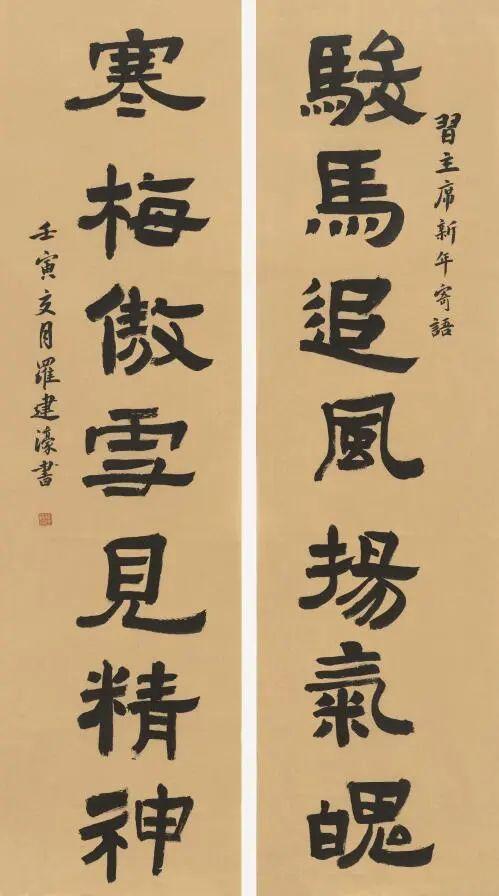 習主席新年寄語
駿馬追風揚氣魄
寒梅傲雪見精神
壬寅亥月羅建濠書